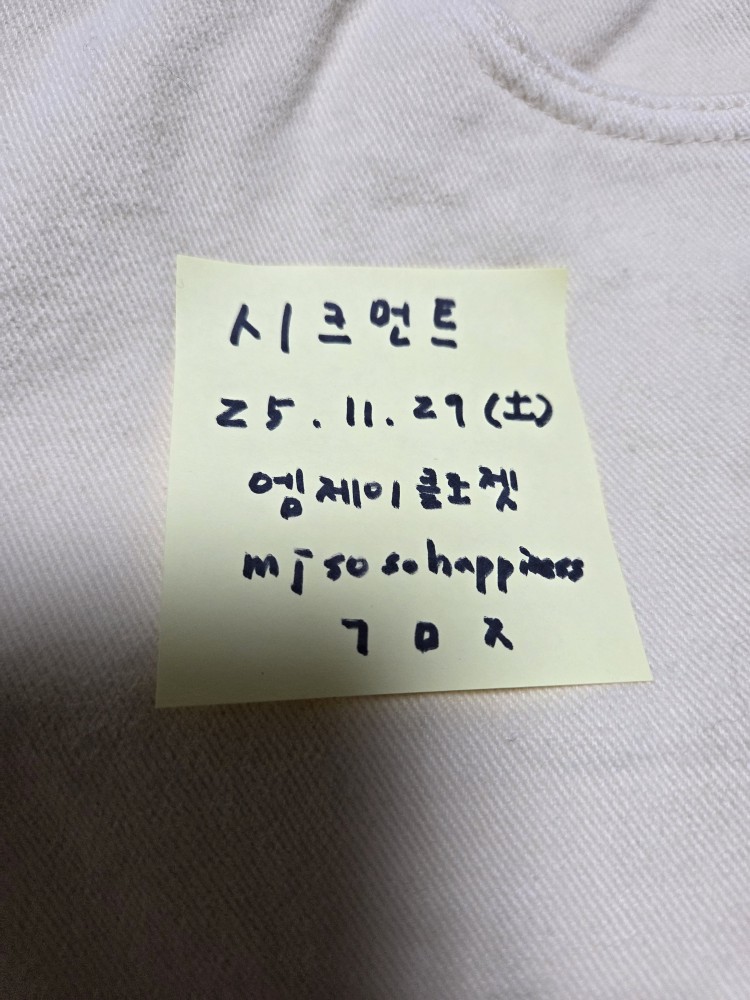 시크먼트
25.11.29(土)
엠제이클로젯
mjsosohappiness
ㄱㅁㅈ